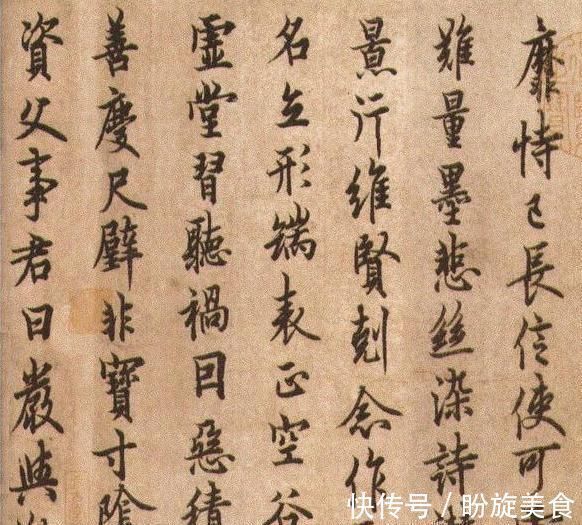 靡恃己長信使可
難量墨悲絲染詩
景行維賢剋念作
名立形端表正空谷
虛堂習聽禍因惡積
善慶尺璧非寶寸陰
資父事君曰嚴與
快传号／盼旋美食